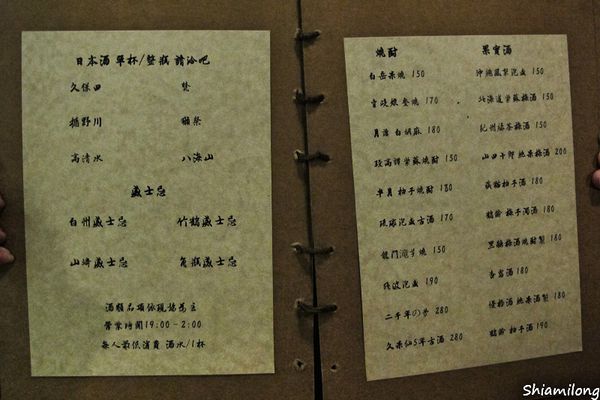 日本酒 單杯/整瓶 請洽吧
久保田
楯野川 獺祭
高清水 八海山
威士忌
白州威士忌 竹鶴威士忌
山崎威士忌 角瓶威士忌
酒類品項依現誌為主
營業時間19:00-2:00
每人最低消費 酒水/1杯
燒酎
白岳米燒 150
170
月濤 白胡麻 180
紫蘇燒酎 150
半月 柚子燒酎 180
琉球泡盛古酒 170
龍門滝芋燒 150
殘波泡盛 190
二千年の夢 280
久米仙5年古酒 280
果實酒
沖繩鳳梨泡盛 150
北海道紫蘇梅酒 150
紀州綠茶梅酒 150
山田十郎 純米梅酒 200
柚子酒 180
鶴齡 梅子濁酒 180
黑糖梅酒燒酎製 180
杏露酒 180
優梅酒 純米酒製 180
鶴齡 柚子酒 190
Shiamilong